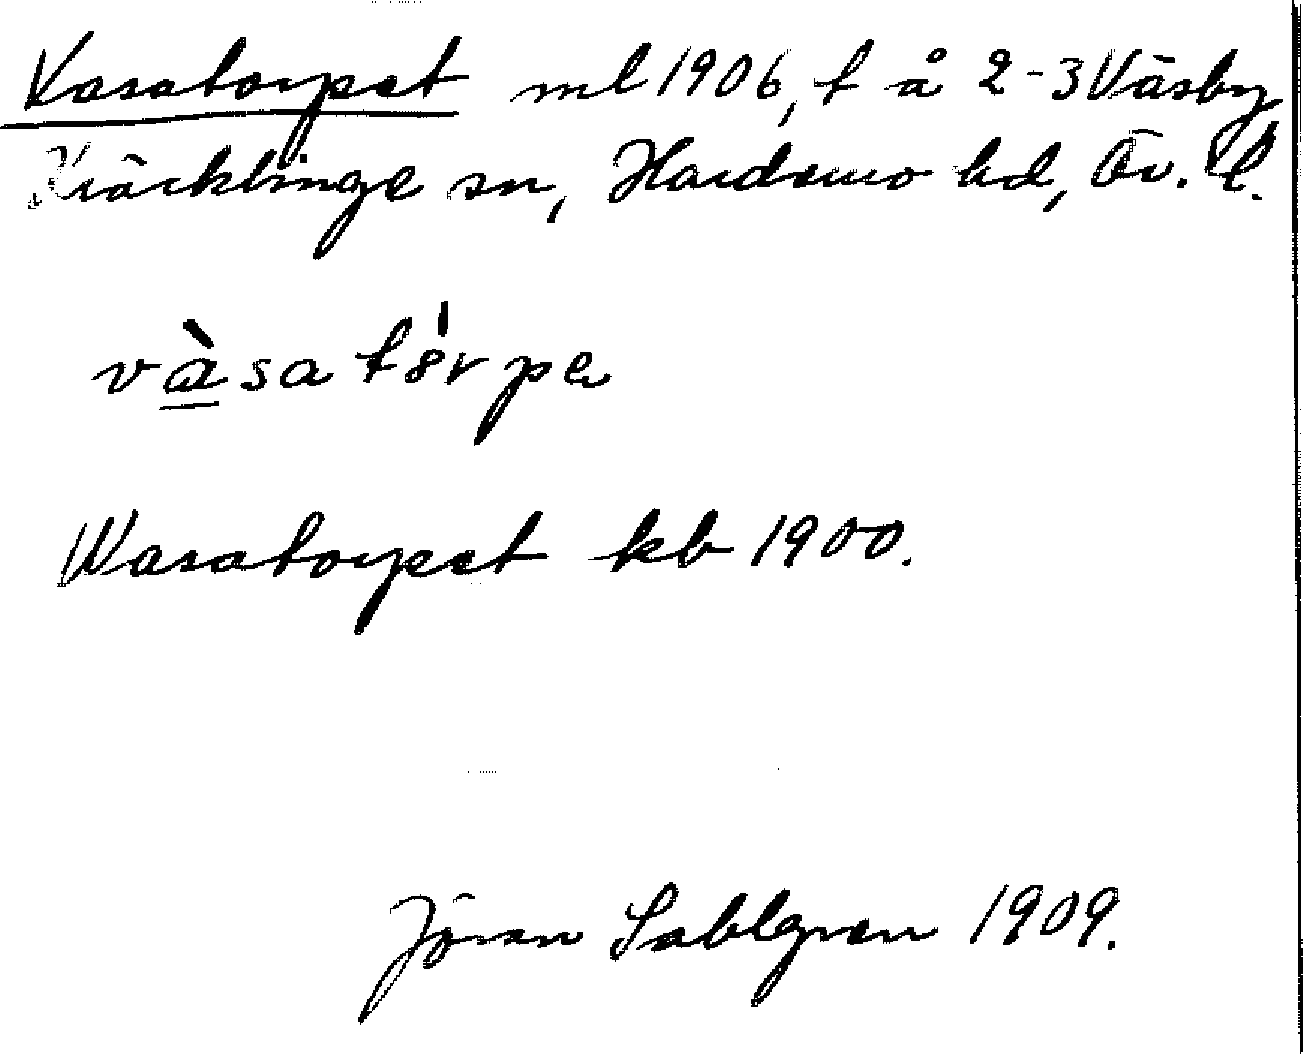 Vasatorpet ml 1906, t å 2-3 Väsby
Kräcklinge sn, Hardemo hd, Ör. l.
vàsa tȯ́rpe
Wasatorpet kb 1900.
Jöran Sahlgren 1909.